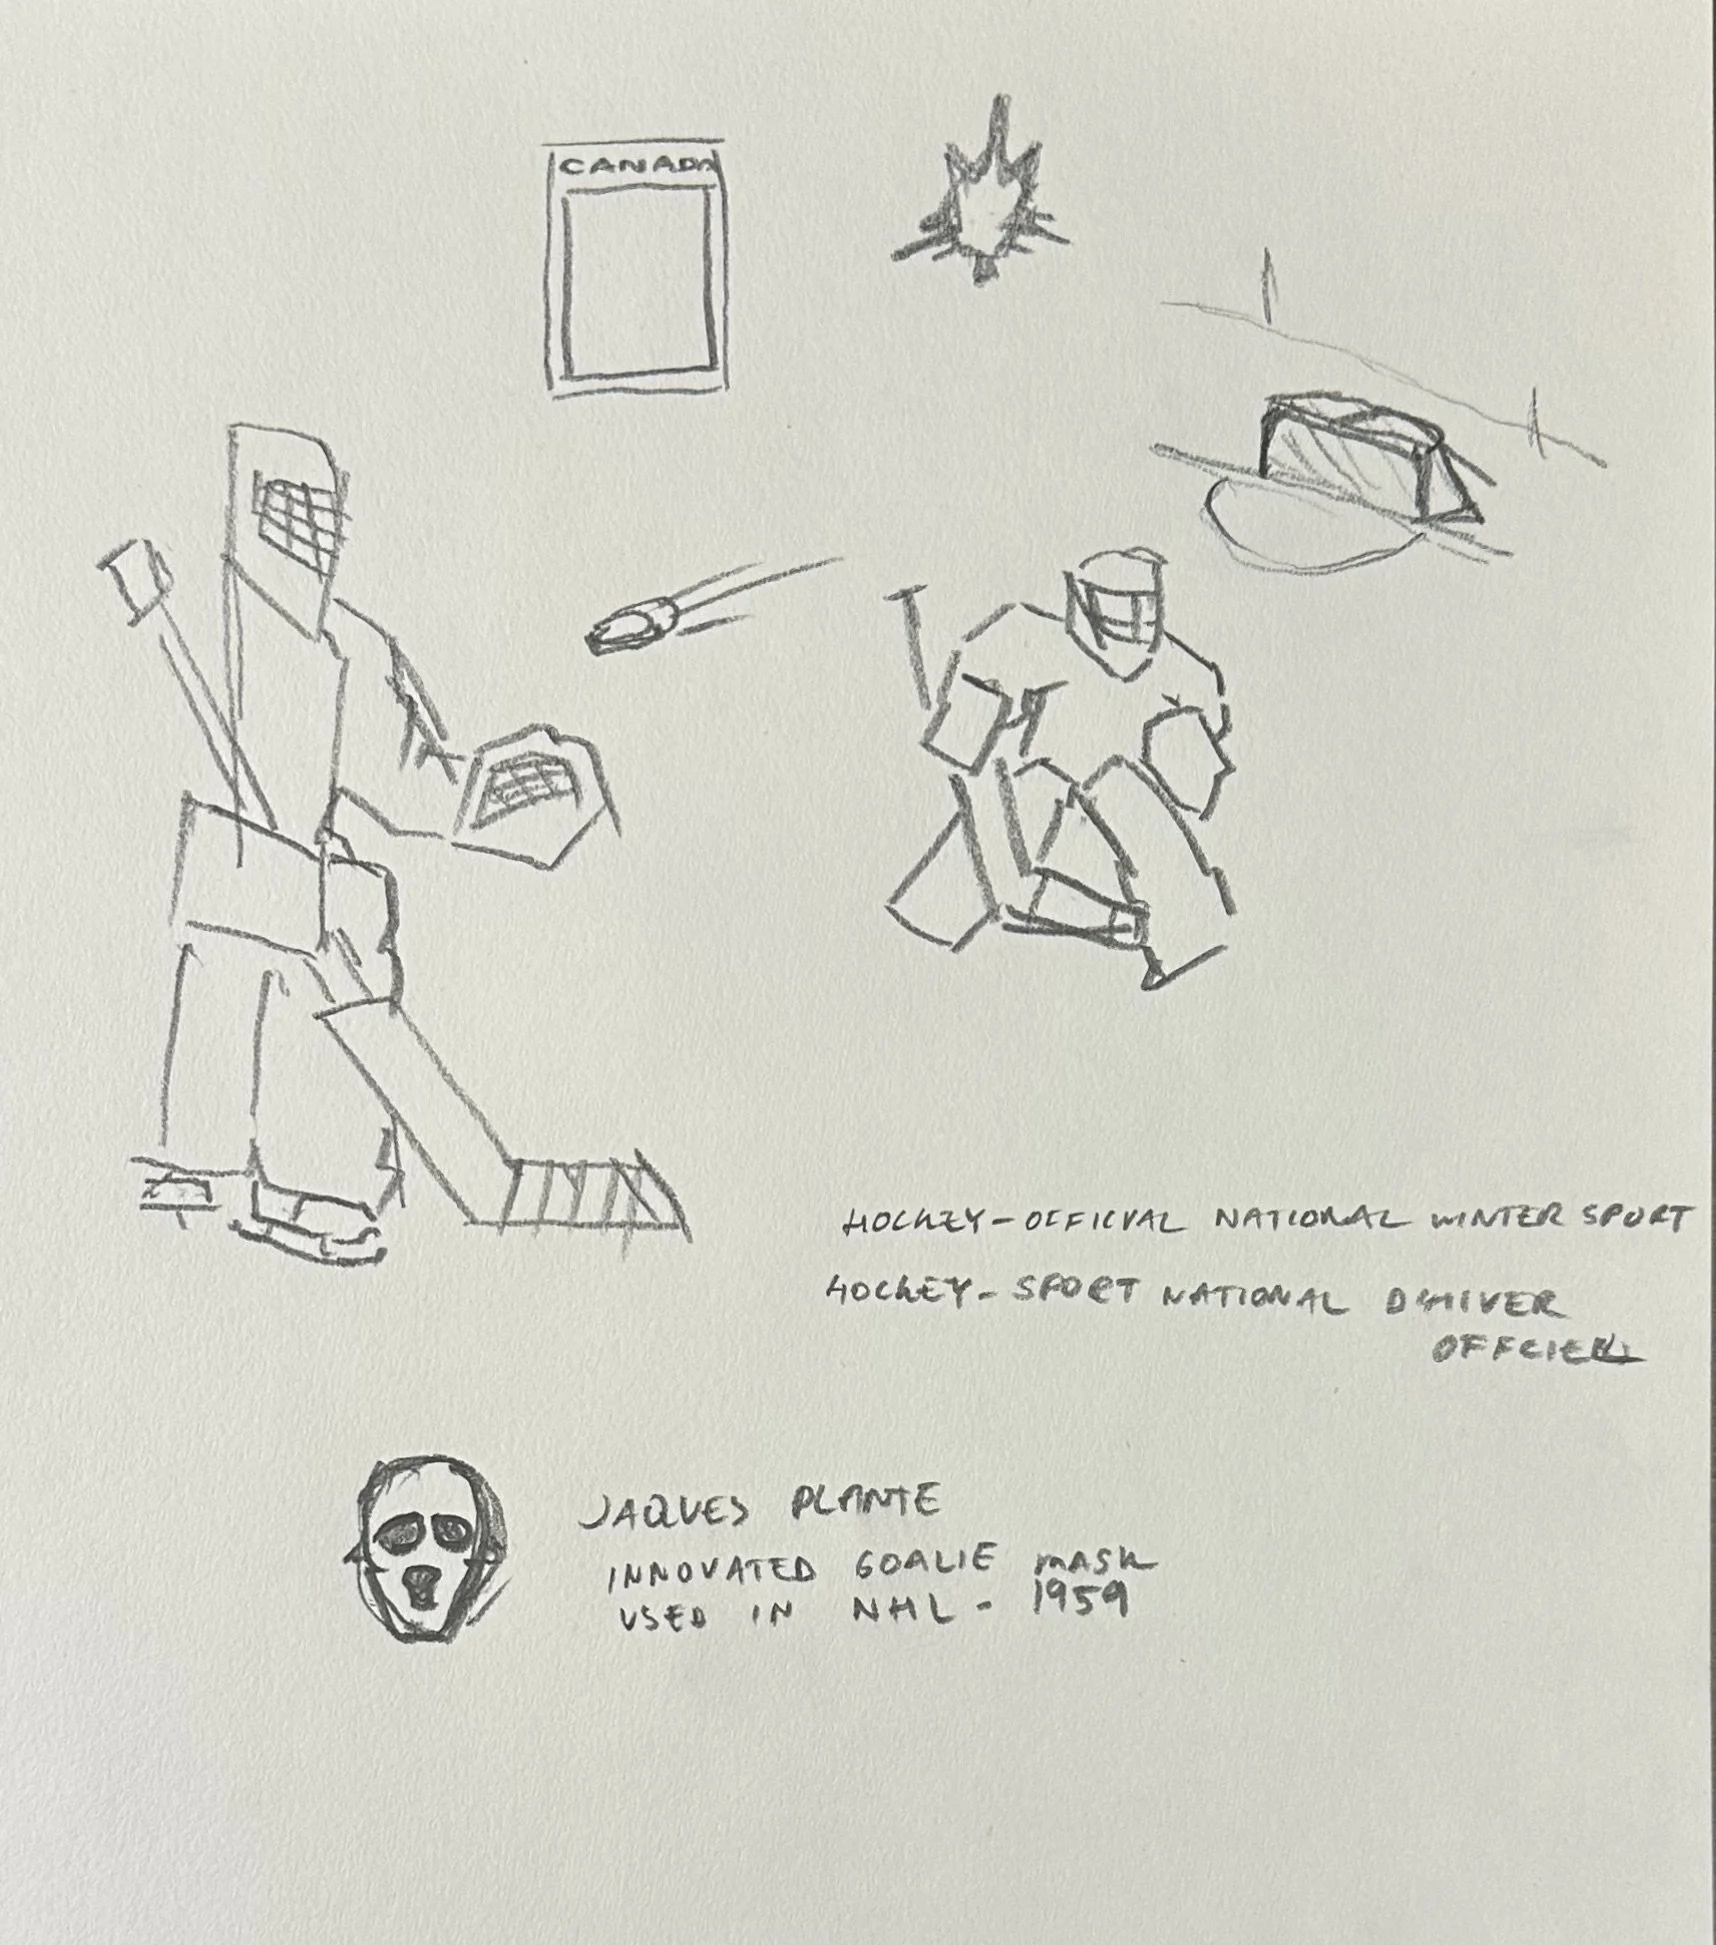 CANADA
HOCKEY - OFFICIAL NATIONAL WINTER SPORT
HOCKEY - SPORT NATIONAL D'HIVER
JAQUES PLANTE
INNOVATED GOALIE MASK
USED IN NHL - 1959